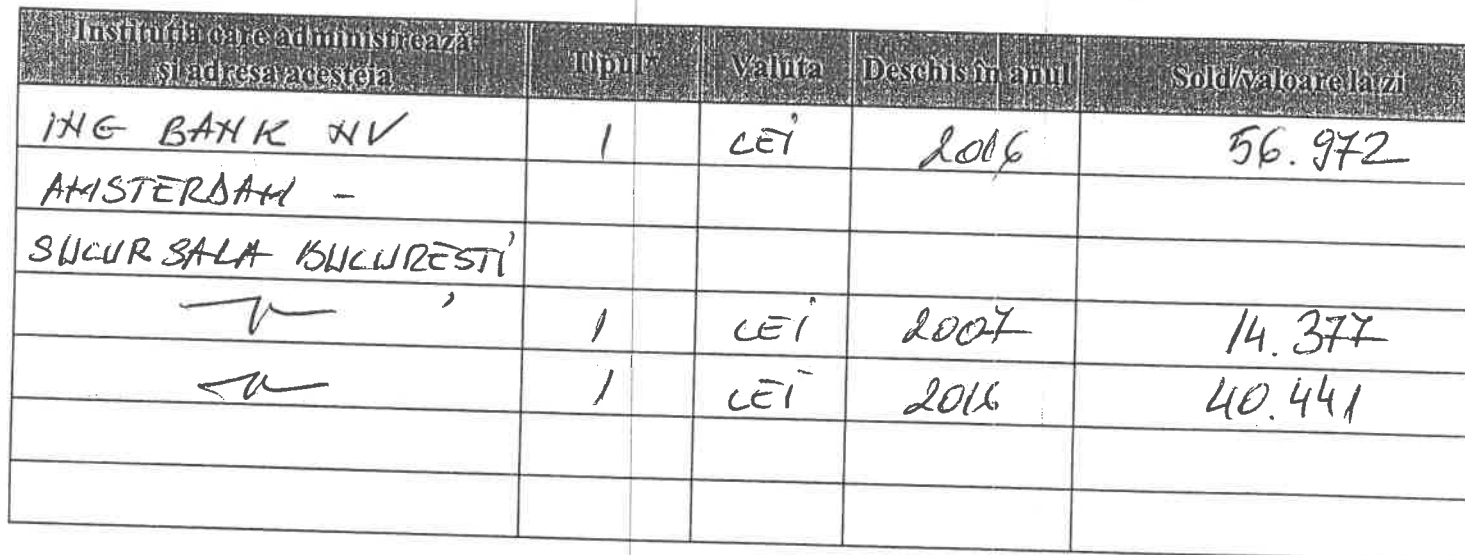 Instituția care administrează
și adresa acesteia
Tipul*
Valuta
Deschis în anul
Sold/valoare la zi
ING BANK NV 1 LEI 2016 56.972
AMSTERDAM -
SUCURSALA BUCUREȘTI
—〃— 1 LEI 2007 14.377
—〃— 1 LEI 2016 40.441